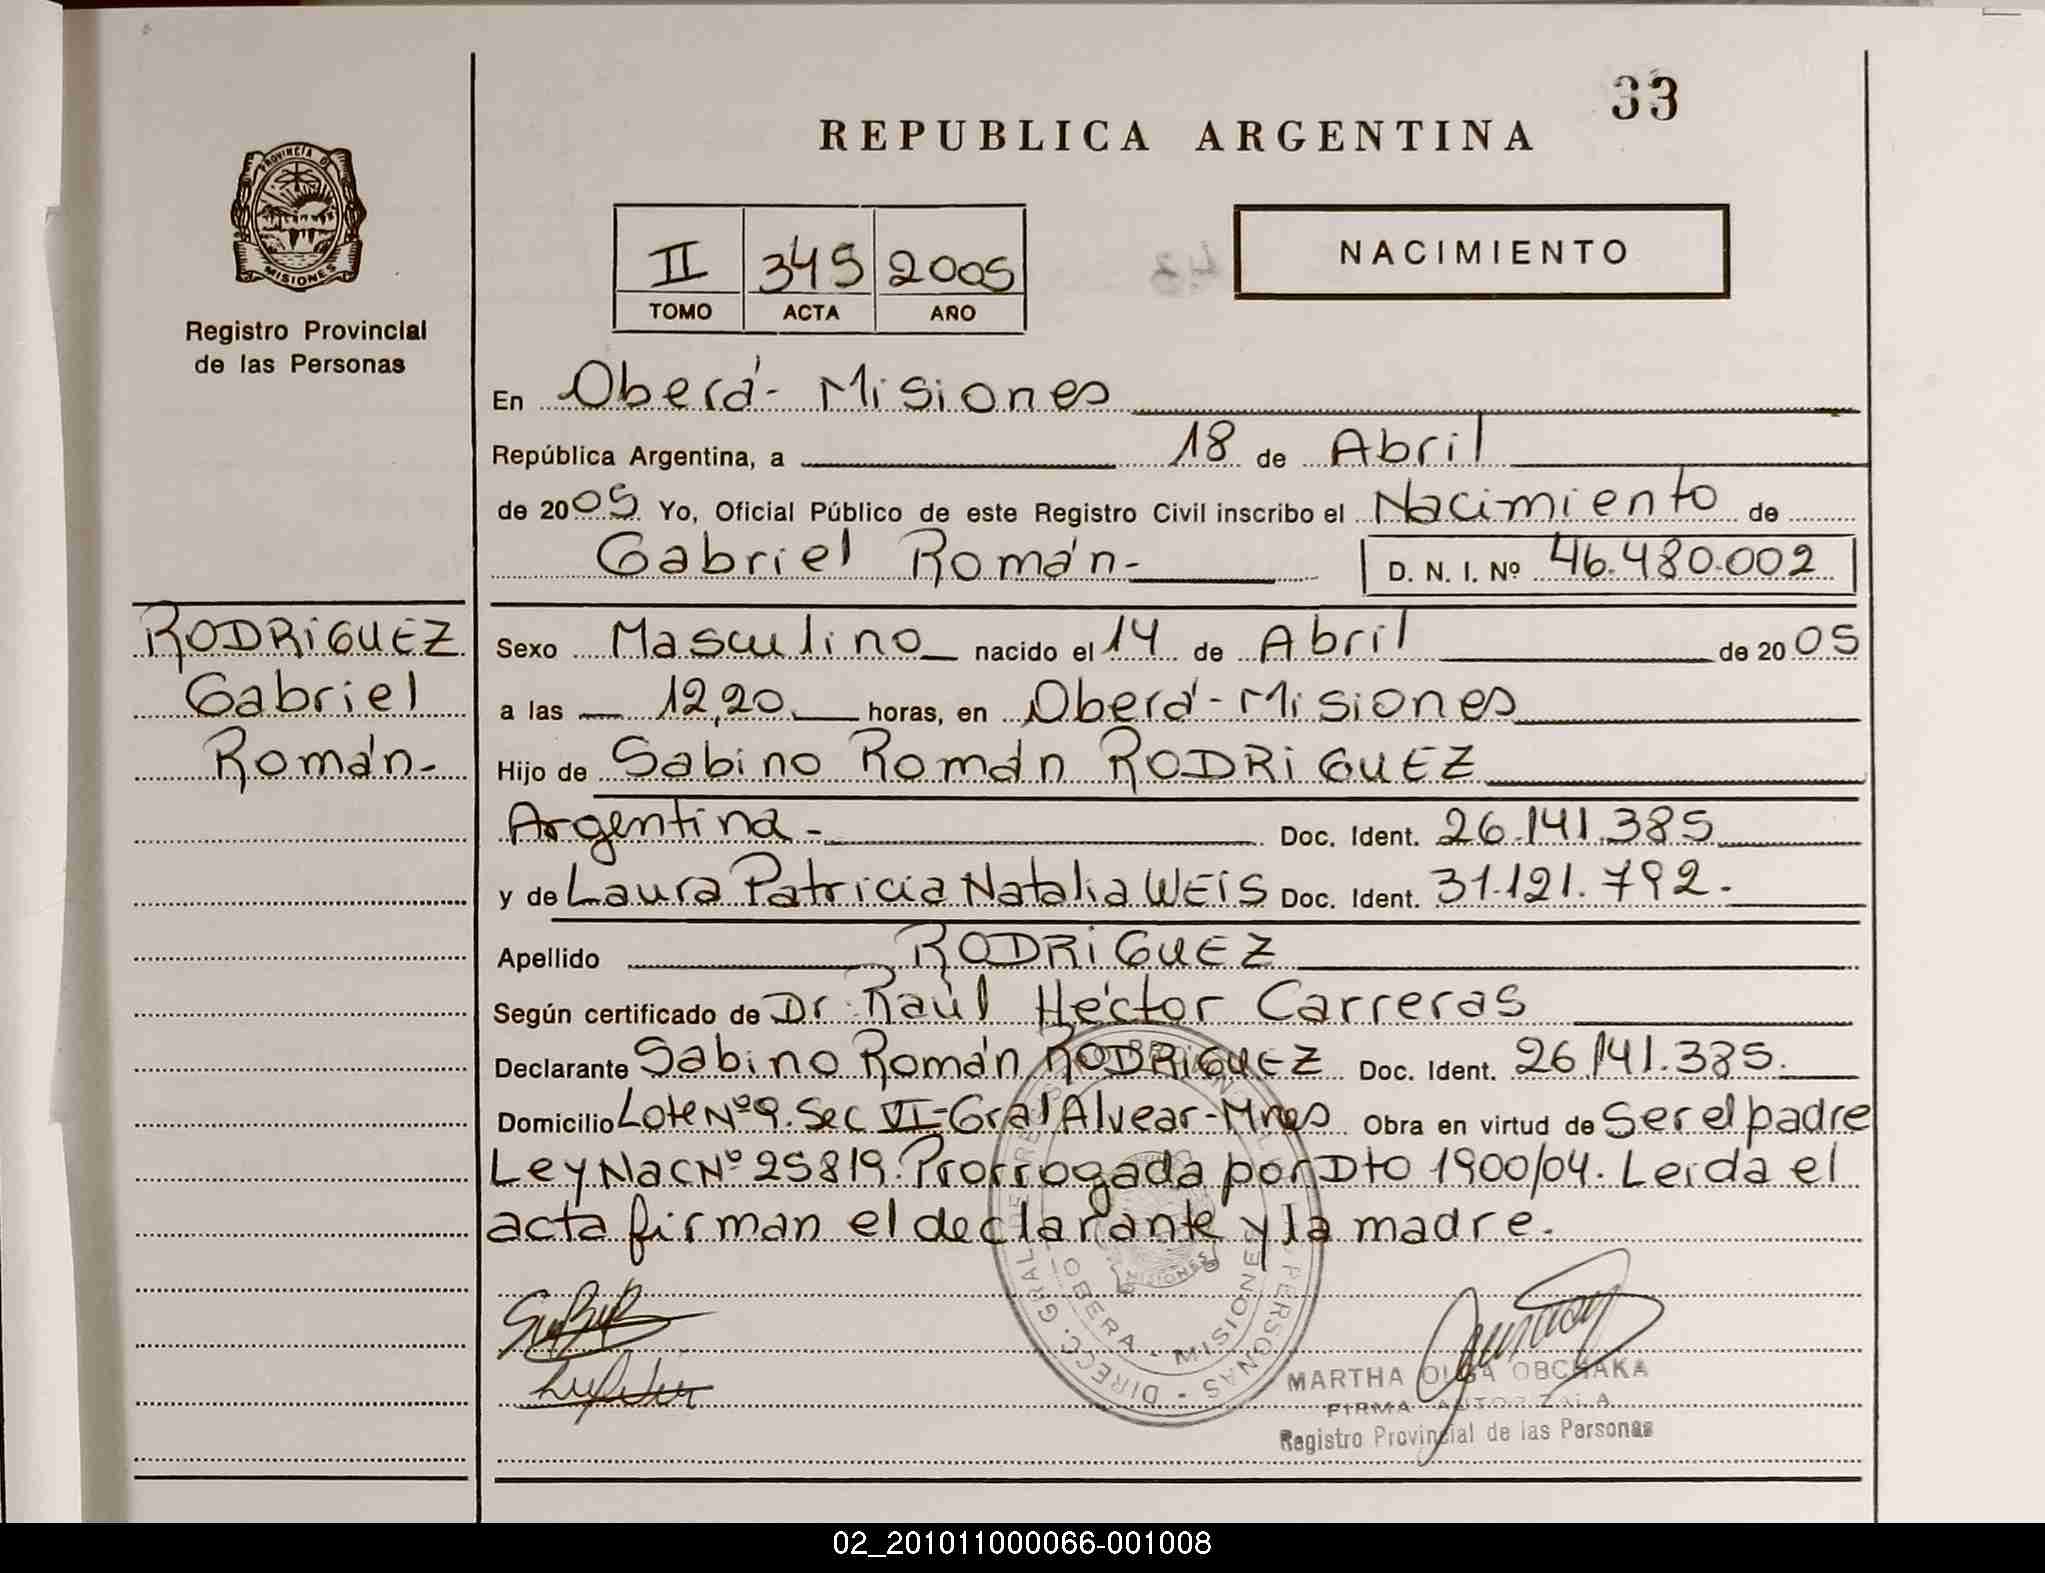 33
REPUBLICA ARGENTINA
PROVINCIA DE
MISIONES
Registro Provincial
de las Personas
II 345 2005
TOMO ACTA AÑO
NACIMIENTO
En Oberá - Misiones
República Argentina, a 18 de Abril
de 2005 Yo, Oficial Público de este Registro Civil inscribo el Nacimiento de
Gabriel Román- D. N. I. Nº 46.480.002
RODRIGUEZ
Gabriel
Román-
Sexo Masculino nacido el 14 de Abril de 2005
a las 12,20 horas, en Oberá - Misiones
Hijo de Sabino Román RODRIGUEZ
Argentina - Doc. Ident. 26.141.385
y de Laura Patricia Natalia WEIS Doc. Ident. 31.121.792.
Apellido RODRIGUEZ
Según certificado de Dr. Raúl Héctor Carreras
Declarante Sabino Román RODRIGUEZ Doc. Ident. 26.141.385.
Domicilio Lote Nº 9. Sec VI - Gral Alvear - Mnes Obra en virtud de Ser el padre
Ley Nac Nº 25819. Prorrogada por Dto 1900/04. Leida el
acta firman el declarante y la madre.
DIRECC. GRAL. DE PERSONAS
OBERA - MISIONES
MISIONES
MARTHA OLGA OBCHAKA
FIRMA AUTORIZADA
Registro Provincial de las Personas
02_201011000066-001008